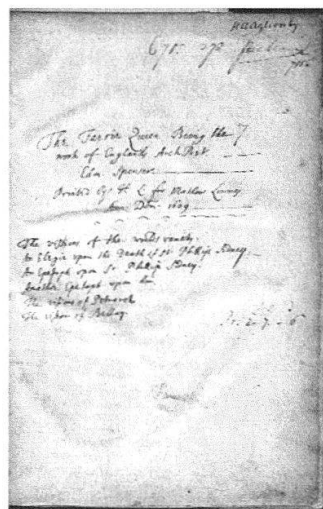 The Ferrie Queen Being the 7
work of England's Arch Poet
Edm Spenser
Printed by H L for Mathew Lownes
Ano Dom 1609
The visions of the worlds vanity.
An Elegie upon the Death of Sr. Phillip Sidney
An Epitaph upon Sr. Phillip Sidney.
Another Epitaph upon him
The visions of Petrarch
The vision of Bellay